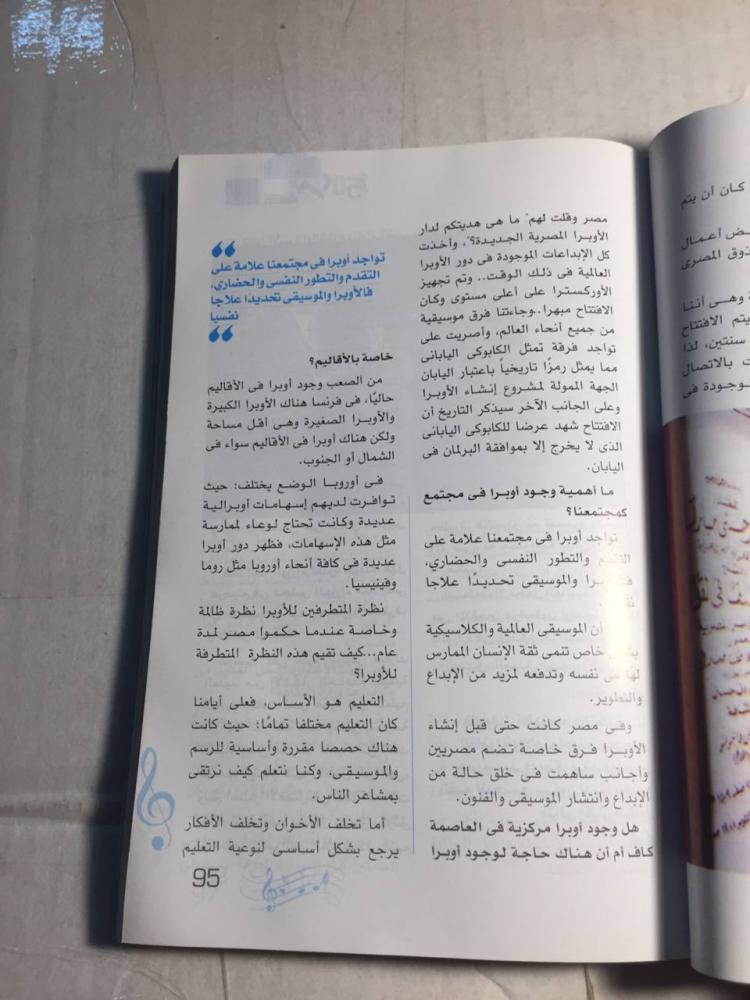 مصر وقلت لهم" ما هى هديتكم لدار
الأوبرا المصرية الجديدة؟"، وأخذت
كل الإبداعات الموجودة فى دور الأوبرا
العالمية فى ذلك الوقت.. وتم تجهيز
الأوركسترا على أعلى مستوى وكان
الافتتاح مبهرا..وجاءتنا فرق موسيقية
من جميع أنحاء العالم، وأصريت على
تواجد فرقة تمثل الكابوكى اليابانى
مما يمثل رمزًا تاريخياً باعتبار اليابان
الجهة الممولة لمشروع إنشاء الأوبرا
وعلى الجانب الآخر سيذكر التاريخ أن
الافتتاح شهد عرضا للكابوكى اليابانى
الذى لا يخرج إلا بموافقة البرلمان فى
اليابان.
ما أهمية وجود أوبرا فى مجتمع
كمجتمعنا؟
تواجد أوبرا فى مجتمعنا علامة على
التقدم والتطور النفسى والحضاري،
فالأوبرا والموسيقى تحديدًا علاجا
أن الموسيقى العالمية والكلاسيكية
خاص تنمى ثقة الإنسان الممارس
لها فى نفسه وتدفعه لمزيد من الإبداع
والتطوير.
وفى مصر كانت حتى قبل إنشاء
الأوبرا فرق خاصة تضم مصريين
وأجانب ساهمت فى خلق حالة من
الإبداع وانتشار الموسيقى والفنون.
هل وجود أوبرا مركزية فى العاصمة
كاف أم أن هناك حاجة لوجود أوبرا
تواجد أوبرا فى مجتمعنا علامة على
التقدم والتطور النفسى والحضارى،
فالأوبرا والموسيقى تحديدا علاجا
نفسيا
خاصة بالأقاليم؟
من الصعب وجود أوبرا فى الأقاليم
حاليًا، فى فرنسا هناك الأوبرا الكبيرة
والأوبرا الصغيرة وهى أقل مساحة
ولكن هناك أوبرا فى الأقاليم سواء فى
الشمال أو الجنوب.
فى أوروبا الوضع يختلف؛ حيث
توافرت لديهم إسهامات أوبرالية
عديدة وكانت تحتاج لوعاء لممارسة
مثل هذه الإسهامات، فظهر دور أوبرا
عديدة فى كافة أنحاء أوروبا مثل روما
وفينيسيا.
نظرة المتطرفين للأوبرا نظرة ظالمة
وخاصة عندما حكموا مصر لمدة
عام...كيف تقيم هذه النظرة المتطرفة
للأوبرا؟
التعليم هو الأساس، فعلى أيامنا
كان التعليم مختلفا تمامًا؛ حيث كانت
هناك حصصا مقررة وأساسية للرسم
والموسيقى، وكنا نتعلم كيف نرتقى
بمشاعر الناس.
أما تخلف الأخوان وتخلف الأفكار
يرجع بشكل أساسى لنوعية التعليم
95
كان أن يتم
أعمال
ذوق المصرى
وهى أننا
يتم الافتتاح
سنتين، لذا
بالاتصال